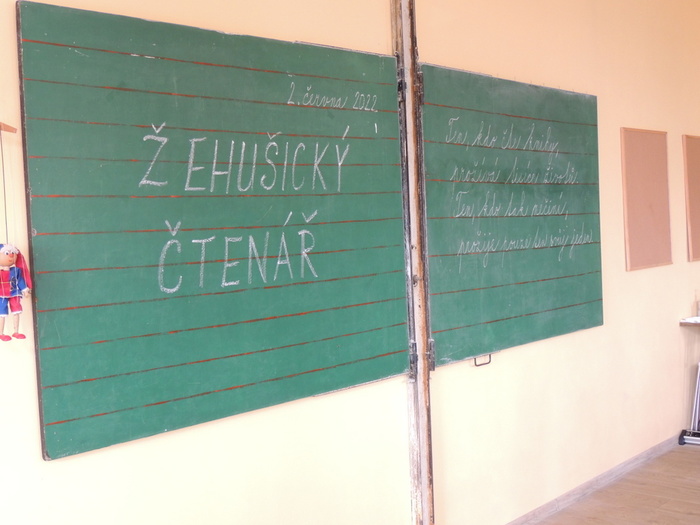 2. června 2022
ŽEHUŠICKÝ
ČTENÁŘ
Ten, kdo čte knihy,
prožívá tisíce životů.
Ten, kdo tak nečiní,
prožije pouze ten svůj jeden.